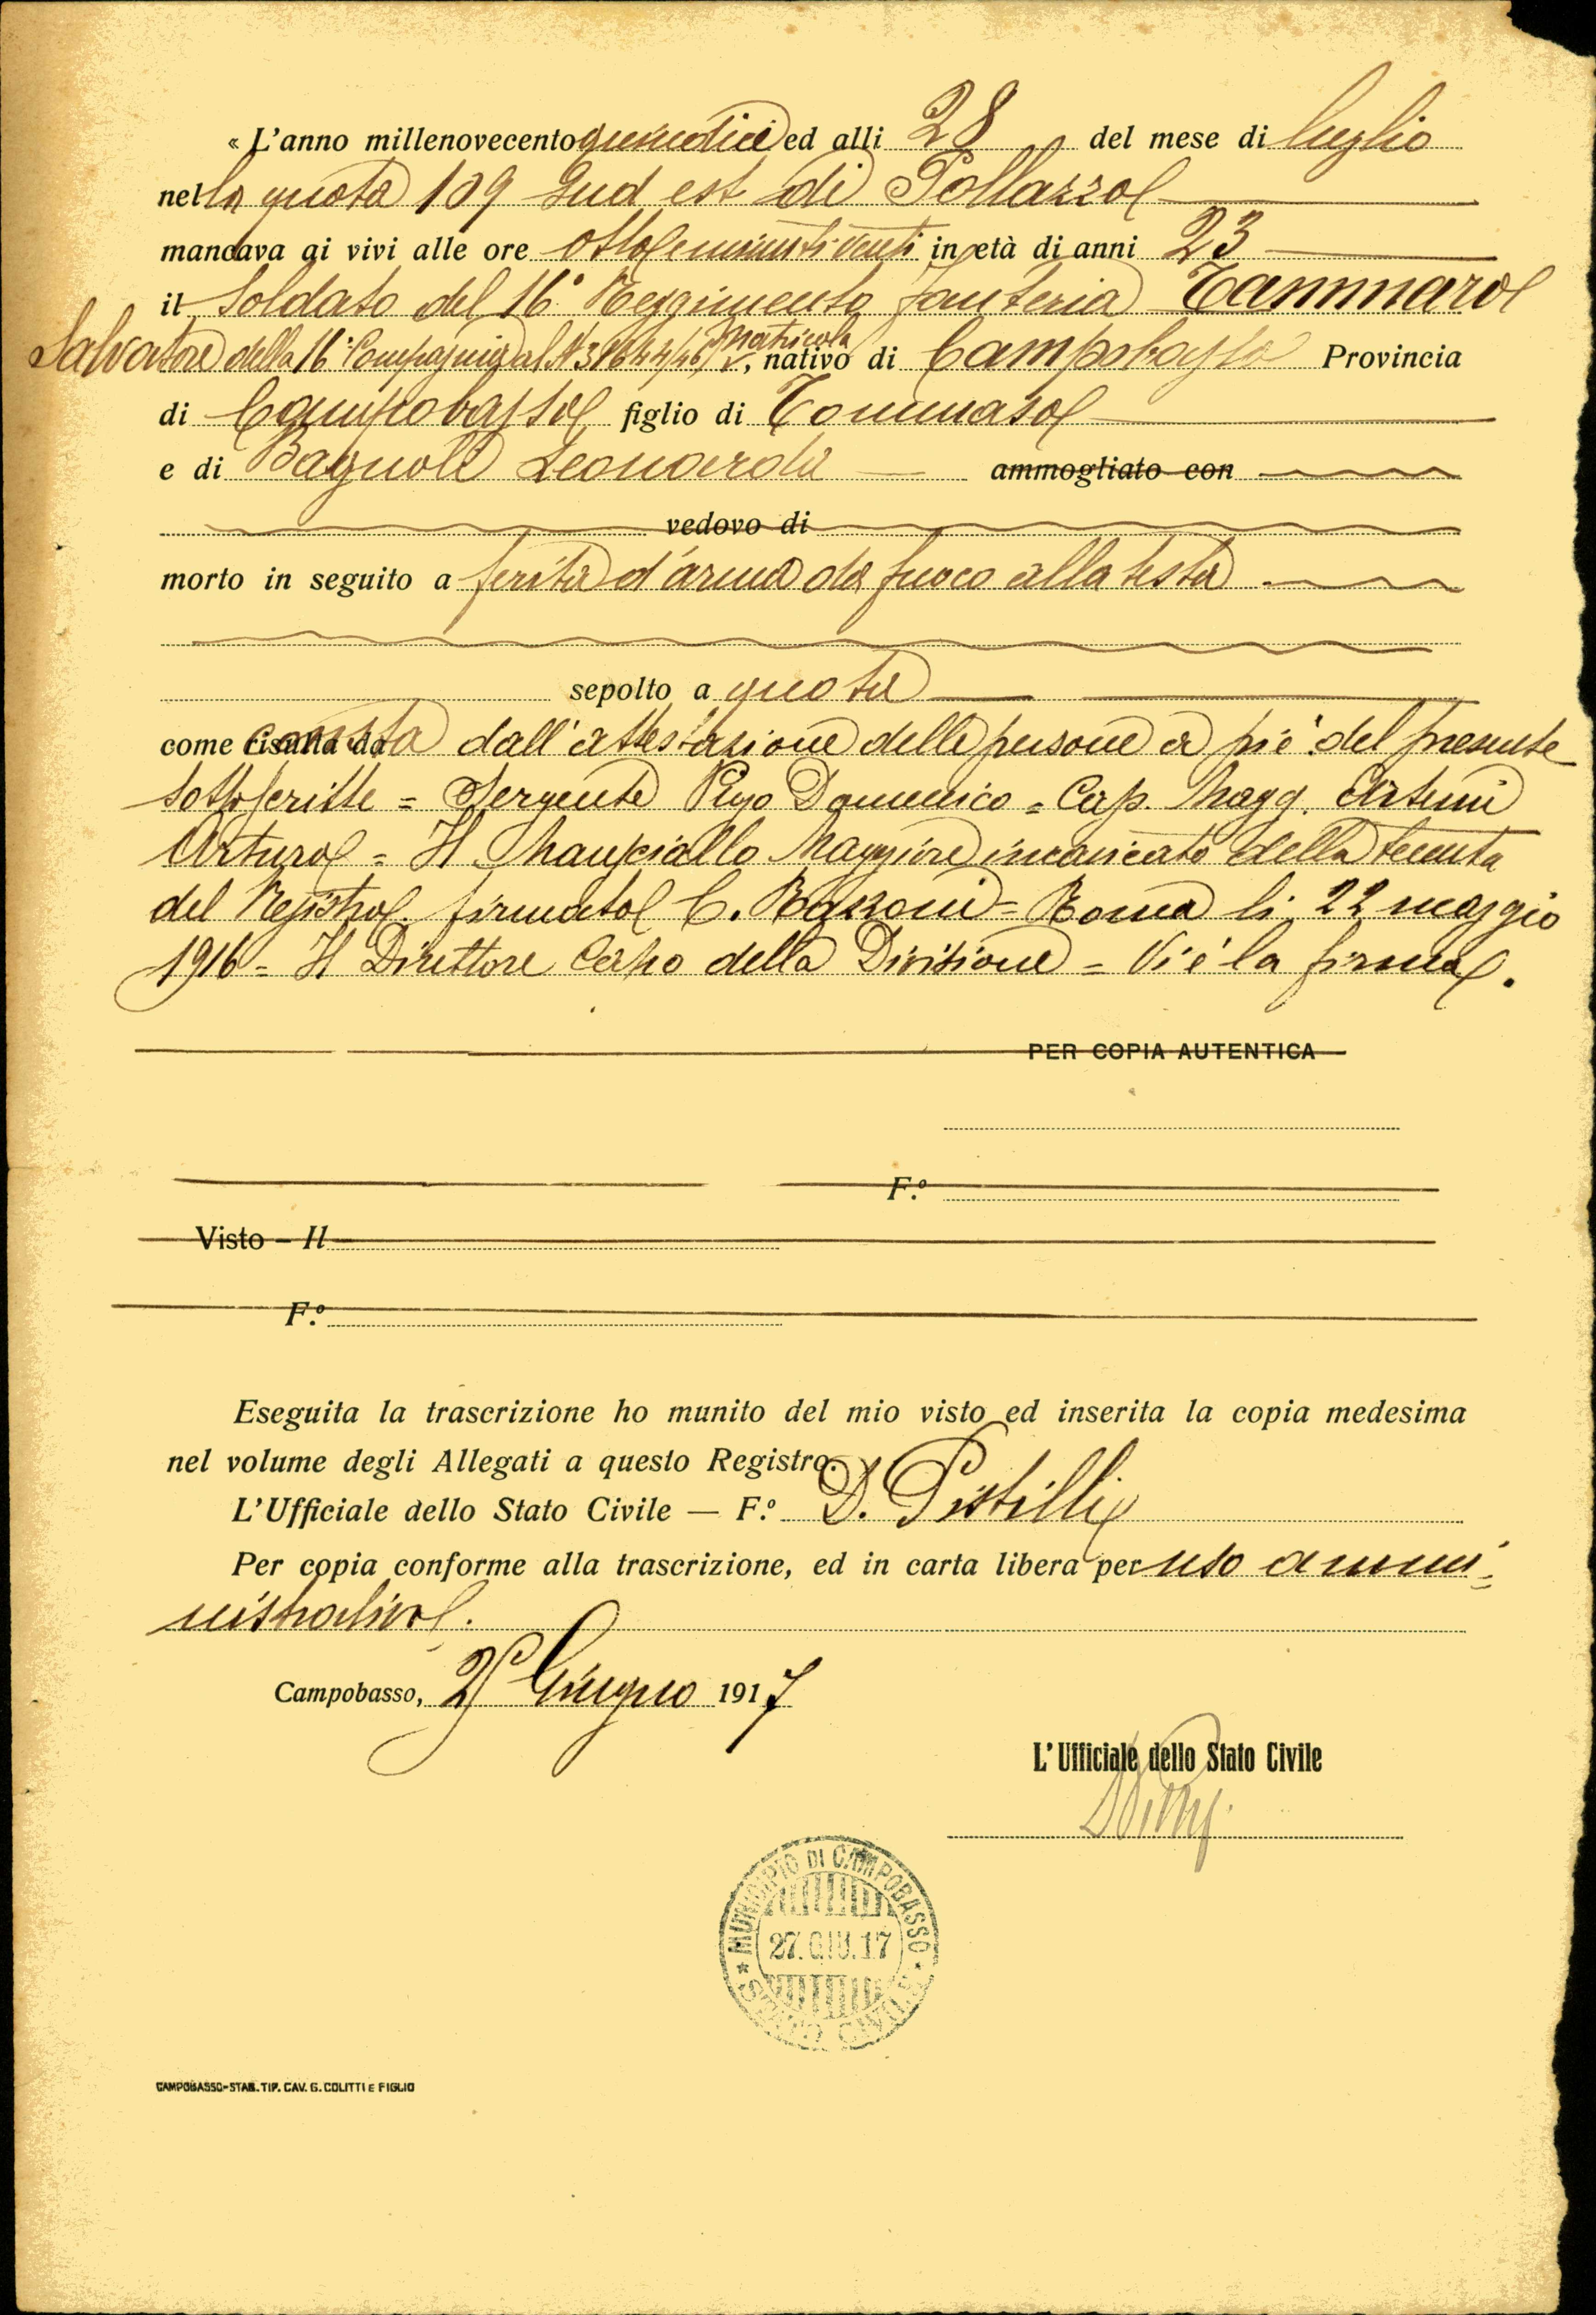 « L'anno millenovecentoquindici ed alli 28 del mese di luglio
nella quota 109 Sud est di Polazzo
mancava ai vivi alle ore otto e minuti venti in età di anni 23
il soldato del 16° Reggimento fanteria Tammaro
Salvatore della 16ª Compagnia al N° 31644/46 Matricola, nativo di Campobasso Provincia
di Campobasso figlio di Tommaso
e di Bagnoli Leonarda ammogliato con
vedovo di
morto in seguito a ferita d'arma da fuoco alla testa
sepolto a quota
come consta dall'attestazione delle persone a piè del presente
sottoscritte = Sergente Domenico = Cap. Magg. Artuni
Arturo = Il Maresciallo Maggiore incaricato della tenuta
del Registro. firmato C. Bazzoni = Roma li 22 maggio
1916 = Il Direttore Capo della Divisione = Vi è la firma.
PER COPIA AUTENTICA
F.º
Visto – Il
F.º
Eseguita la trascrizione ho munito del mio visto ed inserita la copia medesima
nel volume degli Allegati a questo Registro.
L'Ufficiale dello Stato Civile — F.º D. Pistilli
Per copia conforme alla trascrizione, ed in carta libera per uso ammi=
nistrativo.
Campobasso, Giugno 1917
L'Ufficiale dello Stato Civile
MUNICIPIO DI CAMPOBASSO
27.GIU.17
STATO CIVILE
CAMPOBASSO-STAB. TIP. CAV. G. COLITTI E FIGLIO